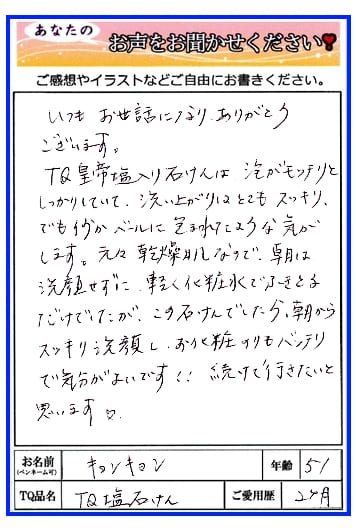 あなたの
お声をお聞かせください
ご感想やイラストなどご自由にお書きください。
いつも お世話になり、ありがとう
ございます。
TQ皇帝塩入り石けんは 泡がモッテリと
しっかりしていて、洗い上がりはとてもスッキリ、
でも何かベールに包まれたような気が
します。元々 乾燥肌なので、朝は
洗顔せずに 軽く化粧水でふきとる
だけでしたが、この石けんでしたら、朝から
スッキリ洗顔し、お化粧のりもバッチリ
で気分がよいです!! 続けて行きたいと
思います♡
お名前
(ペンネーム可)
キョンキョン
年齢
51
TQ品名
TQ塩石けん
ご愛用歴
2ヶ月